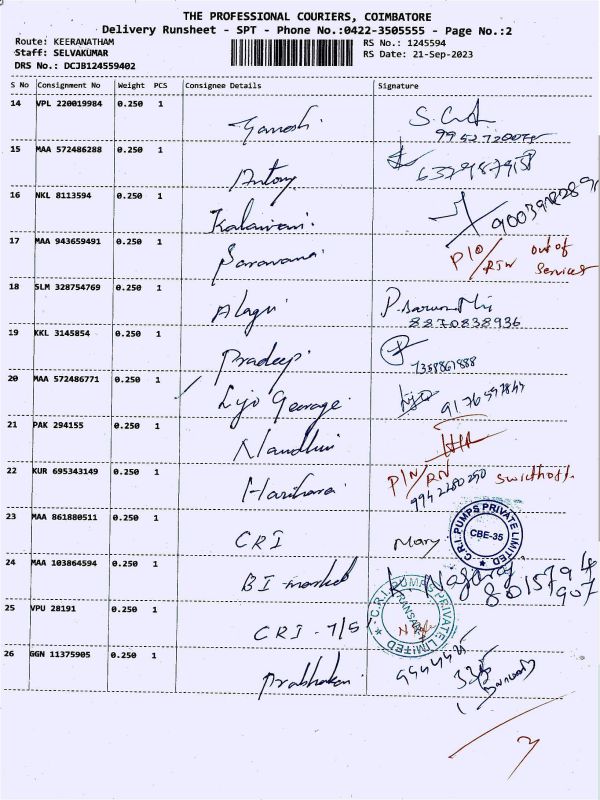 THE PROFESSIONAL COURIERS, COIMBATORE
Delivery Runsheet - SPT - Phone No.:0422-3505555 - Page No.:2
Route: KEERANATHAM
RS No.: 1245594
Staff: SELVAKUMAR
RS Date: 21-Sep-2023
DRS No.: DCJB124559402
S No Consignment No Weight PCS Consignee Details Signature
14 VPL 220019984 0.250 1 Ganesh
15 MAA 572486288 0.250 1 Antony
16 NKL 8113594 0.250 1 Kalaivani
17 MAA 943659491 0.250 1 Saravana P/O/ out of
service
18 SLM 328754769 0.250 1 Alagu
8870838936
19 KKL 3145854 0.250 1 Pradeep
20 MAA 572486771 0.250 1 Lijo George Lijo
21 PAK 294155 0.250 1 Nandhini
22 KUR 695343149 0.250 1 Harihara P/N/RN
9942280250
23 MAA 861880511 0.250 1 CRI Mary
C.R.I. PUMPS PRIVATE LIMITED
CBE-35
24 MAA 103864594 0.250 1 BI Nagaraj
8015794
907
25 VPU 28191 0.250 1 CRI - 7/5
C.R.I. PUMPS PRIVATE LIMITED
26 GGN 11375905 0.250 1 Prabhakan